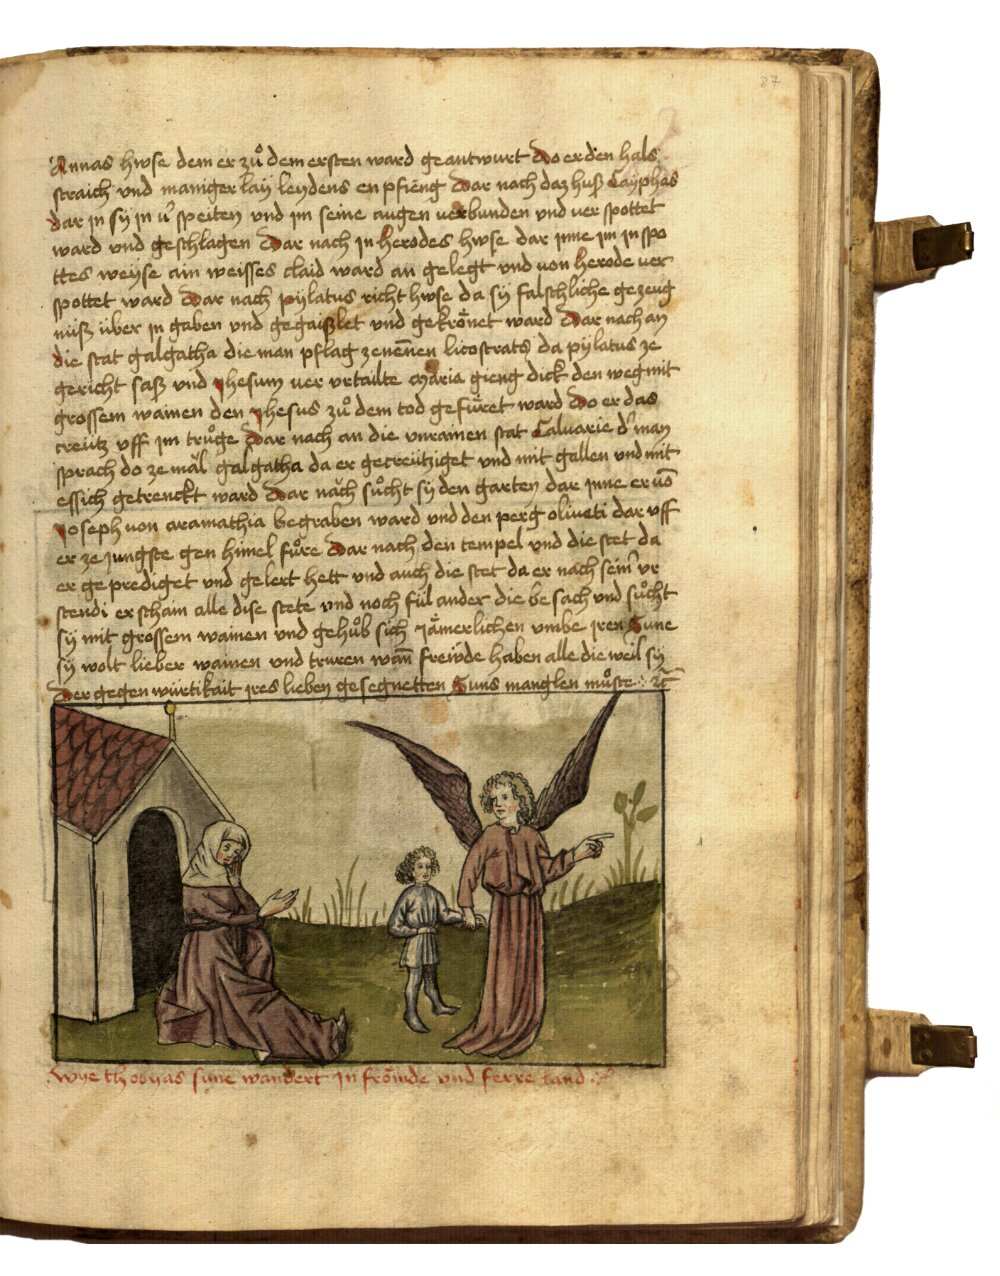 87
Annas hwse dem er zuͦ dem ersten ward geantwurt Do er den hals
straich vnd maniger lay leydens enpfieng Dar nach daz huß Cayphas
dar in sy in v̓speiten vnd im seine augen verbunden vnd verspottet
ward vnd geschlagen Dar nach in herodes hwse dar inne im in spo
ttes weyse ain weisses claid ward an gelegt vnd von herode ver
spottet ward Dar nach pylatus richt hwse da sy falschliche gezeug
nuß über in gaben vnd gegaißlet vnd gekrönet ward Dar nach an
die stat galgatha die man pflag zenen̄en licostrats da pylatus ze
gericht saß vnd Jhesum ver vrtailte maria gieng dick den weg mit
grossem wainen den Jhesus zuͦ dem tod gefüret ward Do er das
creütz vff im truͦge Dar nach an die vnrainen stat Caluarie d' man
sprach do ze mäl galgatha da er gecreütziget vnd mit gallen vnd mit
essich getrenckt ward Dar näch suͦcht sy den garten dar inne er vō
Joseph von aramathia begraben ward vnd den perg oliueti dar vff
er ze jungste gen himel fuͦre Dar nach den tempel vnd die stet da
er geprediget vnd gelert hett vnd auch die stet da er nach sein' vr
stendi erschain alle dise stete vnd noch fül ander die besach vnd suͦcht
sy mit grossem wainen vnd gehuͦb sich Jämerlichen vmbe jren Sune
sy wolt lieber wainen vnd truren wan̄ freẅde haben alle die weil sy
Der gegenwürtikait jres lieben gesegnetten Suns manglen muͦste ꝛc̄
Wye thobyas sune wandert in frömde vnd ferre land